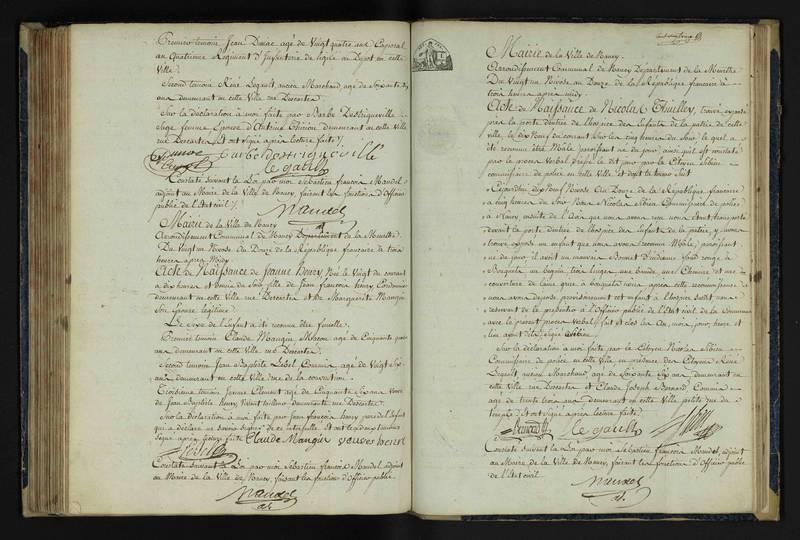 Premier temoin Jean Dusac agé de Vingt quatre ans Caporal
au Quatrieme Regiment d'Infanterie de Ligne au Depot en cette
Ville.
Second temoin René Legault, ancien Marchand, agé de Soixante
ans demeurant en cette Ville rue Descartes
Sur la déclaration à moi faite par Barbe
femme, Epouse d'Antoine demeurant en cette Ville
rue Descartes Et ont signé après lecture faite
le gault
Constaté suivant la Loi par moi Sébastien françois Mandel
adjoint au Maire de la Ville de Nancy, faisant les fonctions d'Officier
public de l'Etat civil
Mandel
adj.
Mairie de la Ville de Nancy
Arrondissement Communal de Nancy Département de la Meurthe
Du Vingt un Nivose, du Douze de la République française à trois
heures après Midy
Acte de Naissance de Jeanne Henry, Née le Vingt du courant
à dix heures et demie du Soir, fille de Jean françois henry, Cordonnier
demeurant en cette Ville rue Descartes et De Marguerite Mangin
Son Epouse légitime
Le sexe de l'Enfant a été reconnu être femelle.
Premier temoin Claude Mangin, Macon agé de Cinquante
ans demeurant en cette Ville rue Descartes
Second temoin Jean Baptiste Lebel Commis, agé de Vingt
ans, demeurant en cette Ville, rue de la Convention.
Troisieme temoin Jeanne Clement agée de Cinquante Six ans veuve
de Jean Baptiste henry demeurante rue Descartes.
Sur la déclaration à moi faite par Jean françois henry père de l'Enfant
qui a déclaré ne savoir signer de ce interpellé. Et ont les deux temoins
signé après lecture faite Claude Mangin
Constaté suivant la Loi par moi Sébastien françois Mandel adjoint
au Maire de la Ville de Nancy, faisant les fonctions d'Officier public
Mandel
adj.
Mairie de la Ville de Nancy.
Arrondissement Communal de Nancy Département de la Meurthe
Du Vingt un Nivose an Douze de la République française à
trois heures après midy
Acte de Naissance de Nicolas Thulley, trouvé exposé
près la porte d'entrée de l'hospice des Enfants de la patrie de cette
Ville, le dix Neuf du courant Sur les cinq heures du Soir, lequel a
été reconnu être Mâle paroissant né du jour, ainsi qu'il est constaté
par le procès Verbal dressé le dit jour par le Citoyen
commissaire de police en cette Ville et dont la teneur suit
Cejourdhui dix Neuf Nivose An Douze de la République française
à cinq heures du Soir Nous Nicolas Commissaire de police
à Nancy ensuite de l'avis que nous avons reçu nous étant transporté
devant la porte d'entrée de l'hospice des Enfants de la patrie, y avons
trouvé exposé un enfant que nous avons reconnu Mâle, paroissant
né du jour, il avoit un mauvais Bonnet d'indienne fond rouge à
Bouquets, un béguin, trois langes, une bande, une Chemise et une
couverture de laine grise à laquelle nous après cette reconnoissance
nous avons déposé provisoirement cet enfant à l'hospice susdit nous
réservant de le présenter à l'Officier public de l'Etat civil de la Commune
avec le présent procès verbal, fait et clos les an, mois, jour, heure et
lieu avant dits, signé
Sur la déclaration à moi faite par le Citoyen Nicolas
Commissaire de police en cette Ville en présence des Citoyens René
Legault ancien Marchand, agé de soixante Six ans demeurant en
cette Ville rue Descartes et Claude Joseph Bernard Commis
agé de trente trois ans demeurant en cette Ville petite rue du
temple. Et ont signé après lecture faite.
Bernard le gault
Constaté suivant la Loi par moi Sébastien françois Mandel, adjoint
au Maire de la Ville de Nancy, faisant les fonctions d'Officier public
de l'Etat civil
Mandel
adj.